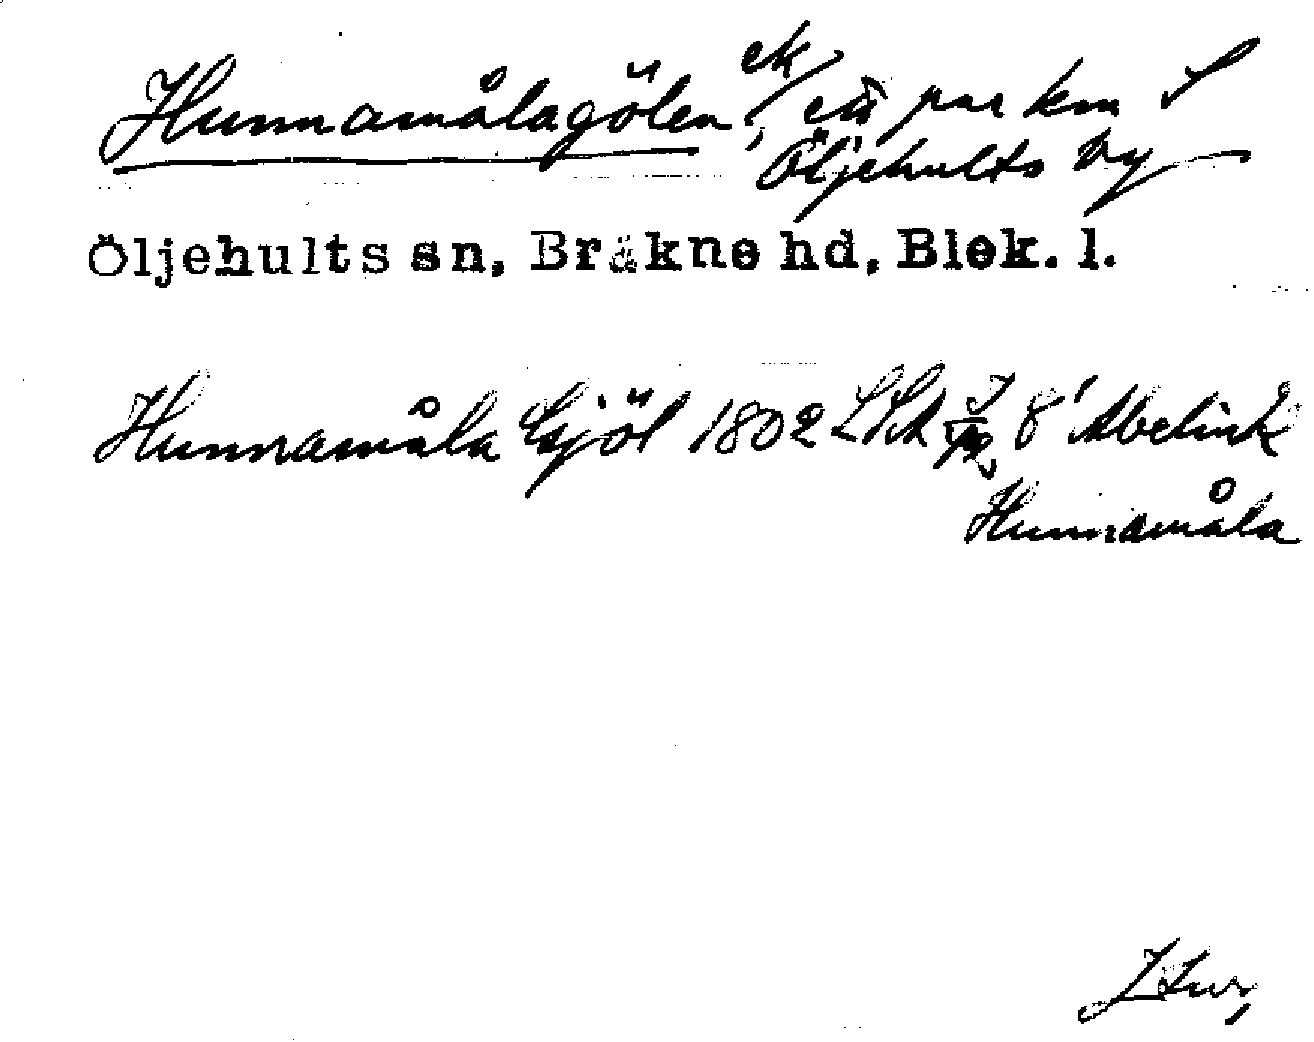 Hunnamålagölen, ek, ett par km S
Öljehults by
Öljehults sn, Bräkne hd, Blek. l.
Hunnamåla Gjöl 1802 LSA 8
Hunnamåla